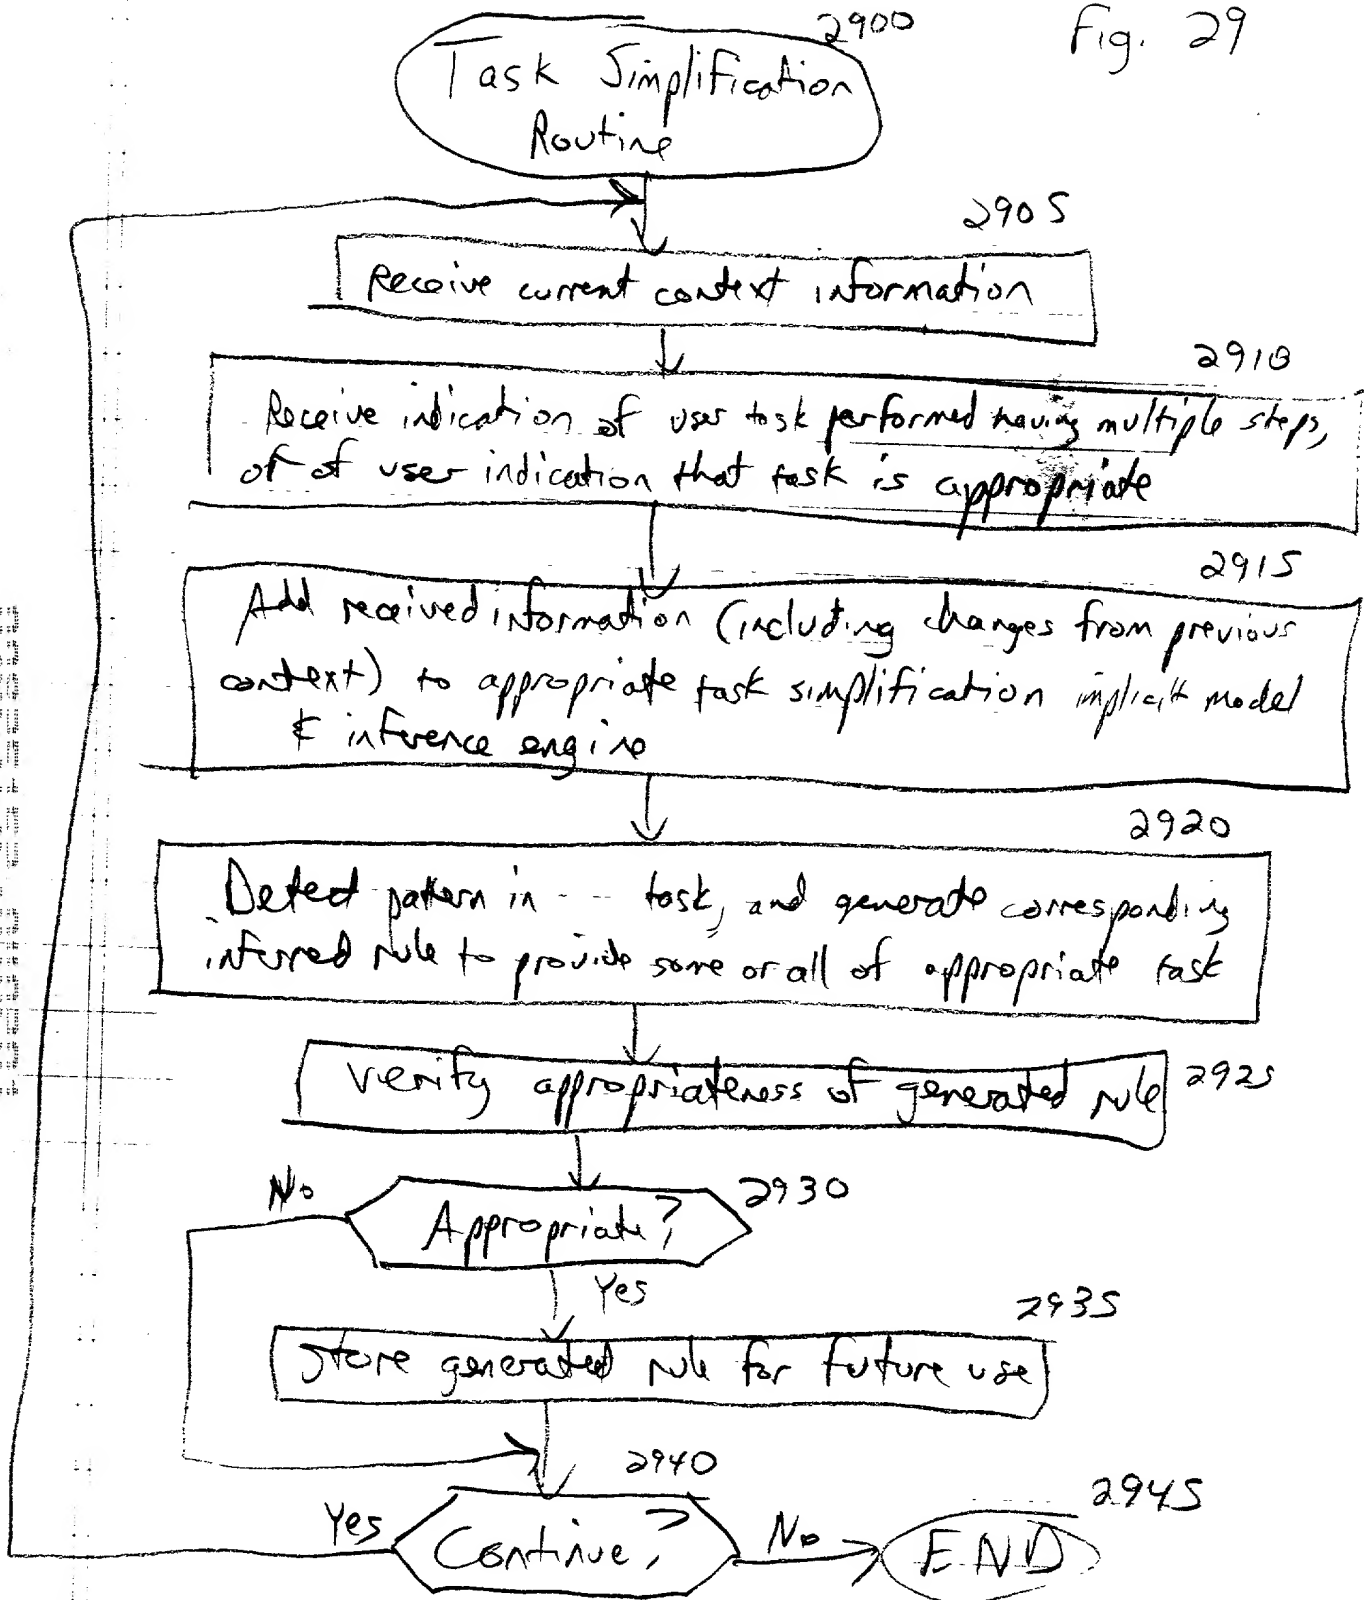 2900
Fig. 29
Task Simplification
Routine
2905
Receive current context information
2910
Receive indication of user task performed having multiple steps,
of of user indication that task is appropriate
2915
Add received information (including changes from previous
context) to appropriate task simplification implicit model
& inference engine
2920
Detect pattern in -- task, and generate corresponding
inferred rule to provide some or all of appropriate task
verify appropriateness of generated rule 2925
No
Appropriate? 2930
Yes
2935
Store generated rule for future use
2940
2945
Yes Continue? No END